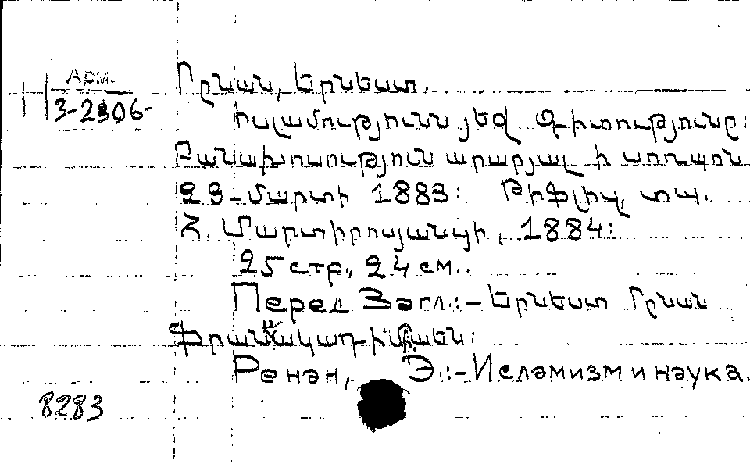 Арм.
3-2306-
Րընան, Երնեստ.
Իսլամությունն յեվ Գիտությունը:
Բանախոսություն արարյալ ի սոռպոն
23-մարտի 1883: Թիֆլիզ, տպ.
Հ. Մարտիրոսյանցի, 1884:
25 стр., 24 см..
Перед Загл.:- Երնեստ Րընան
Ֆրանսական
Ренан, Э.:- Исламизм и наука.
8283